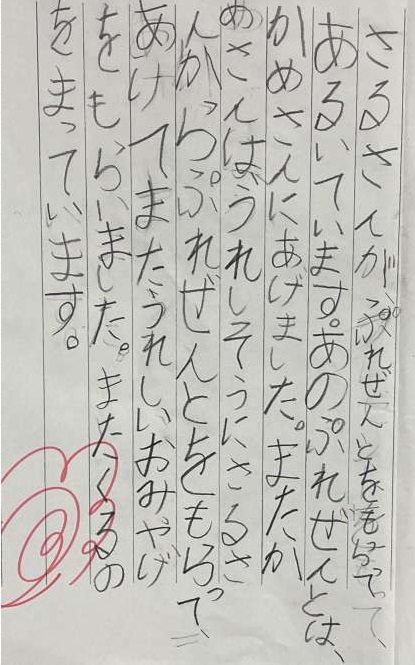 さるさんが、ぷれぜんとをもらって、
あるいています。あのぷれぜんとは、
かめさんにあげました。またか
めさんはうれしそうにさるさ
んからぷれぜんとをもらって、
あけてまたうれしいおみやげ
をもらいました。またくるの
をまっています。